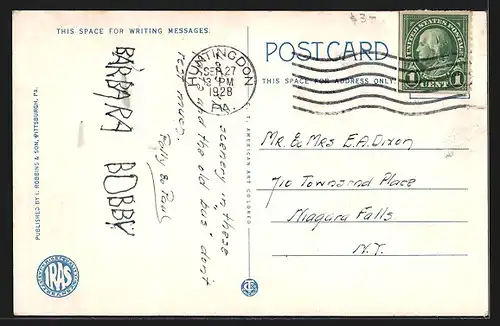 $3—
THIS SPACE FOR WRITING MESSAGES.
POSTCARD
THIS SPACE FOR ADDRESS ONLY.
UNITED STATES POSTAGE
1 1
CENT
HUNTINGDON
SEP 27
4 PM
1928
PA.
BARBARA BOBBY
scenery in these
and the old "bus" don't
rest much
Polly & Paul
Mr. & Mrs E.A. Dixon
710 Townsend Place
Niagara Falls
N.Y.
PUBLISHED BY I. ROBBINS & SON, PITTSBURGH, PA.
C. T. AMERICAN ART COLORED
IRAS